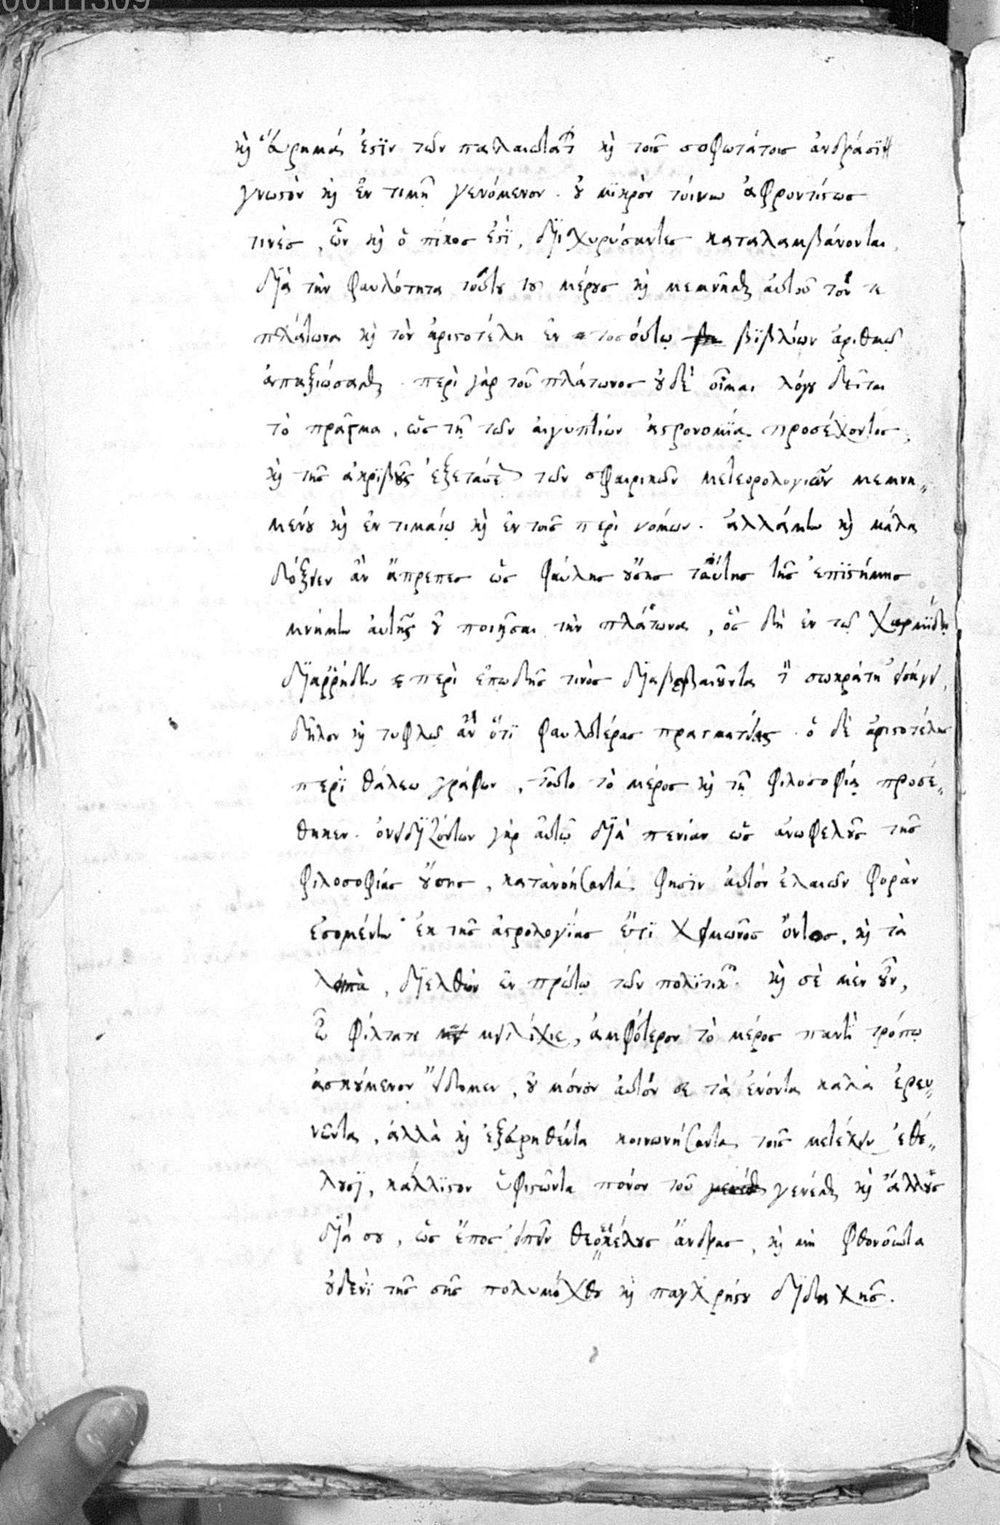 καὶ εὕρημά ἐστιν τῶν παλαιοτάτων καὶ τοῖς σοφωτάτοις ἀνδράσι
γνωστὸν καὶ ἐν τιμῇ γενόμενον. οὐ μικρὸν τοίνυν ἀφροντίστως
τινὲς, ὧν καὶ ὁ πίκος ἐστὶ, διισχυρίσαντες καταλαμβάνονται,
διὰ τὴν φαυλότητα τούτου τοῦ μέρους καὶ μεμνῆσθαι αὐτοῦ τόν τε
πλάτωνα καὶ τὸν ἀριστοτέλη ἐν τοσούτῳ βιβλίων ἀριθμῷ
ἀπαξιώσασθαι. περὶ γὰρ τοῦ πλάτωνος οὐδὲ οἶμαι λόγου δεῖται
τὸ πρᾶγμα, ὡς τῇ τῶν αἰγυπτίων ἀστρονομίᾳ προσέχοντος,
καὶ τῆς ἀκριβοῦς ἐξετάσεως τῶν σφαιρικῶν μετεορολογιῶν μεμνη-
μένου καὶ ἐν τιμαίῳ καὶ ἐν τοῖς περὶ νόμων. ἀλλὰ μὴν καὶ μάλα
δόξειεν ἂν ἄπρεπες ὡς φαύλης οὔσης ταύτης τῆς ἐπιστήμης
μνήμην αὐτῆς οὐ ποιῆσαι τὸν πλάτωνα, ὃς δὴ ἐν τῷ χαρμίδῃ
διαρρήδην περὶ ἐπῳδῆς τινὸς διαβεβαιοῦντα τὸν σωκράτη εἰσάγει,
δῆλον καὶ τυφλῷ ἂν ὅτι φαυλοτέρας πραγματείας. ὁ δὲ ἀριστοτέλης
περὶ θάλεω γράφων, τοῦτο τὸ μέρος καὶ τῇ φιλοσοφίᾳ προσέ-
θηκεν. ὀνειδιζόντων γὰρ αὐτῷ διὰ πενίαν ὡς ἀνωφελοῦς τῆς
φιλοσοφίας οὔσης, κατανοήσαντά φησιν αὐτὸν ἐλαιῶν φορὰν
ἐσομένην ἐκ τῆς ἀστρολογίας ἔτι χειμῶνος ὄντος, καὶ τὰ
λοιπὰ, διελθὼν ἐν πρώτῳ τῶν πολιτικῶν. καὶ σὲ μὲν οὖν,
ὦ φίλτατε μειλίχιε, ἀμφότερον τὸ μέρος παντὶ τρόπῳ
ἀσκούμενον εἴδομεν, οὐ μόνον αὐτόν σε τὰ ἐνόντα καλὰ ἐρευ-
νῶντα, ἀλλὰ καὶ ἐξευρηθέντα κοινωνήσαντα τοῖς μετέχειν ἐθέ-
λουσι, κάλλιστον ὑφιστῶντα πόνον τοῦ γενέσθαι καὶ ἄλλους
διά σου, ὡς ἔπος εἰπεῖν θεοεικέλους ἄνδρας, καὶ μὴ φθονοῦντα
οὐδενὶ τῆς σῆς πολυμόχθου καὶ παγχρήστου διδαχῆς.